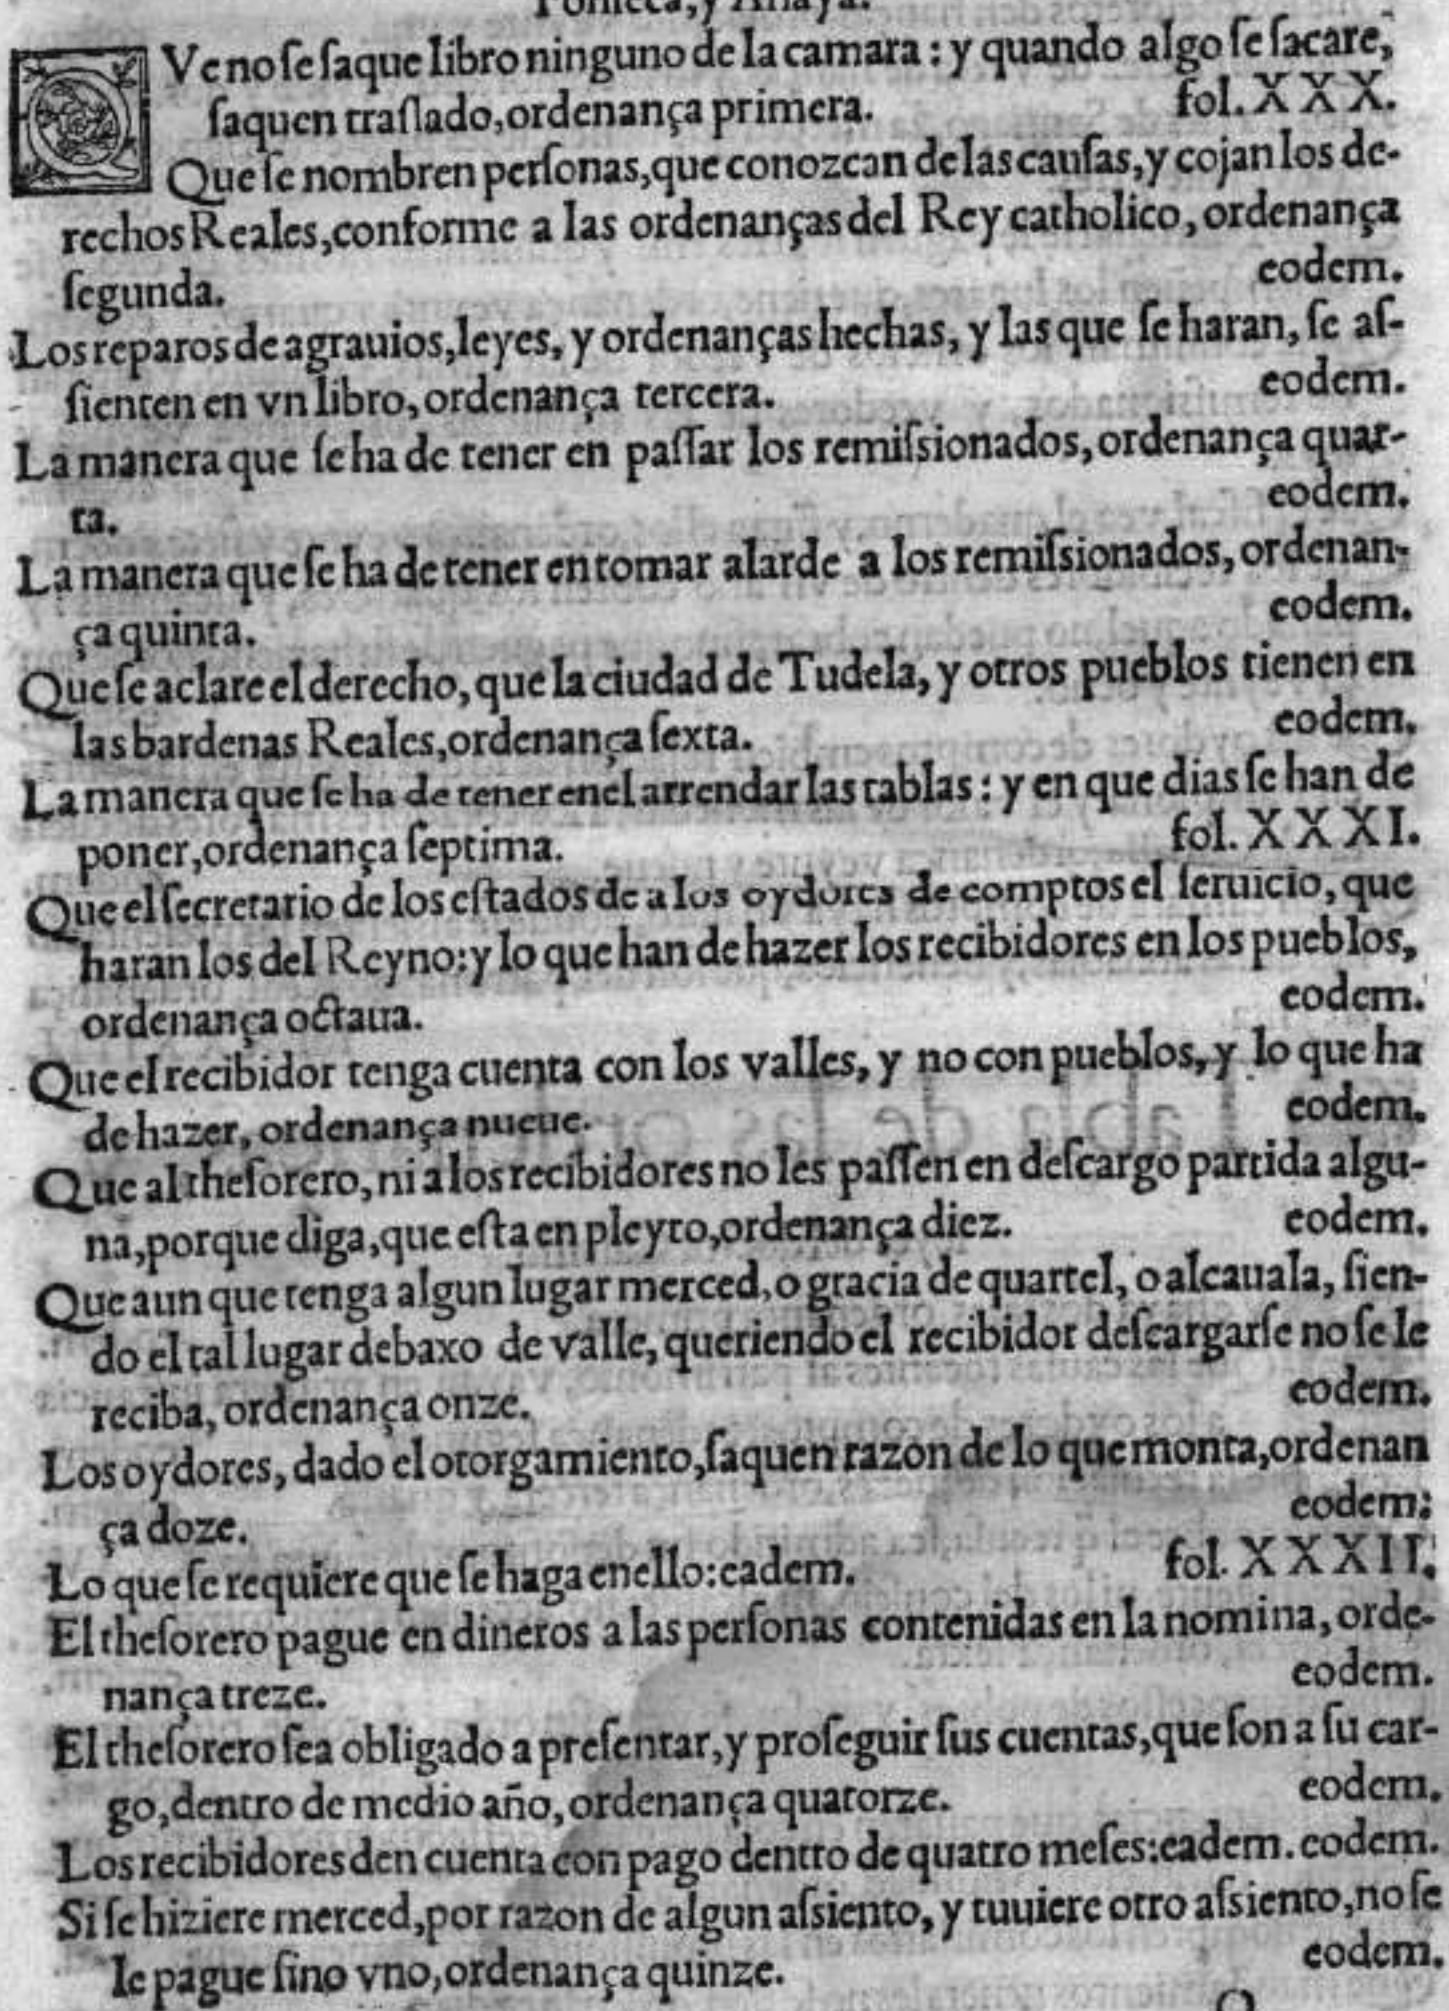 Fonseca, y Anaya.
QVe no ſe ſaque libro ninguno de la camara : y quando algo ſe ſacare,
ſaquen traſlado, ordenança primera. fol. XXX.
Que ſe nombren perſonas, que conozcan de las cauſas, y cojan los de-
rechos Reales, conforme a las ordenanças del Rey catholico, ordenança
ſegunda. eodem.
Los reparos de agrauios, leyes, y ordenanças hechas, y las que ſe haran, ſe aſ-
ſienten en vn libro, ordenança tercera. eodem.
La manera que ſe ha de tener en paſſar los remiſsionados, ordenança quar-
ta. eodem.
La manera que ſe ha de tener en tomar alarde a los remiſsionados, ordenan-
ça quinta. eodem.
Que ſe aclare el derecho, que la ciudad de Tudela, y otros pueblos tienen en
las bardenas Reales, ordenança ſexta. eodem.
La manera que ſe ha de tener enel arrendar las tablas : y en que dias ſe han de
poner, ordenança ſeptima. fol. XXXI.
Que el ſecretario de los eſtados de a los oydores de comptos el ſeruicio, que
haran los del Reyno: y lo que han de hazer los recibidores en los pueblos,
ordenança octaua. eodem.
Que el recibidor tenga cuenta con los valles, y no con pueblos, y lo que ha
de hazer, ordenança nueue. eodem.
Que al theſorero, ni a los recibidores no les paſſen en deſcargo partida algu-
na, porque diga, que eſta en pleyto, ordenança diez. eodem.
Que aun que tenga algun lugar merced, o gracia de quartel, o alcauala, ſien-
do el tal lugar debaxo de valle, queriendo el recibidor deſcargarſe no ſe le
reciba, ordenança onze. eodem.
Los oydores, dado el otorgamiento, ſaquen razon de lo que monta, ordenan
ça doze. eodem:
Lo que ſe requiere que ſe haga enello: eadem. fol. XXXII.
El theſorero pague en dineros a las perſonas contenidas en la nomina, orde-
nança treze. eodem.
El theſorero ſea obligado a preſentar, y proſeguir ſus cuentas, que ſon a ſu car-
go, dentro de medio año, ordenança quatorze. eodem.
Los recibidores den cuenta con pago dentro de quatro meſes: eadem. eodem.
Si ſe hiziere merced, por razon de algun aſsiento, y tuuiere otro aſsiento, no ſe
le pague ſino vno, ordenança quinze. eodem.